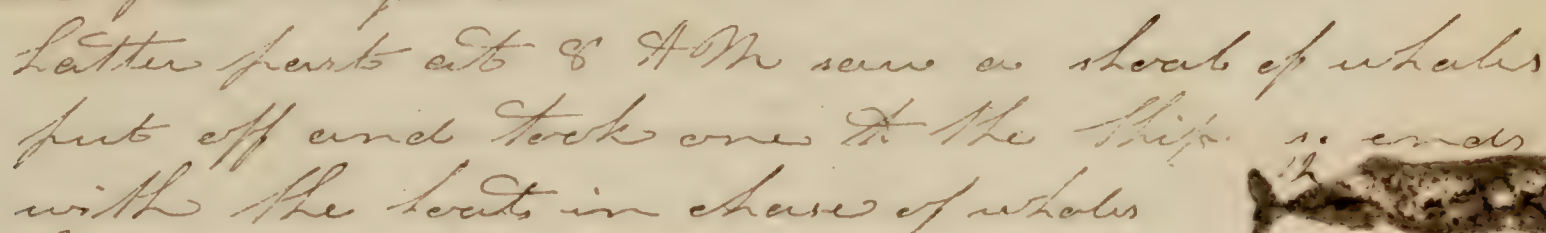 Latter part at 8 AM saw a shoal of whales
put off and took one to the ship so ends
with the boats in chase of whales